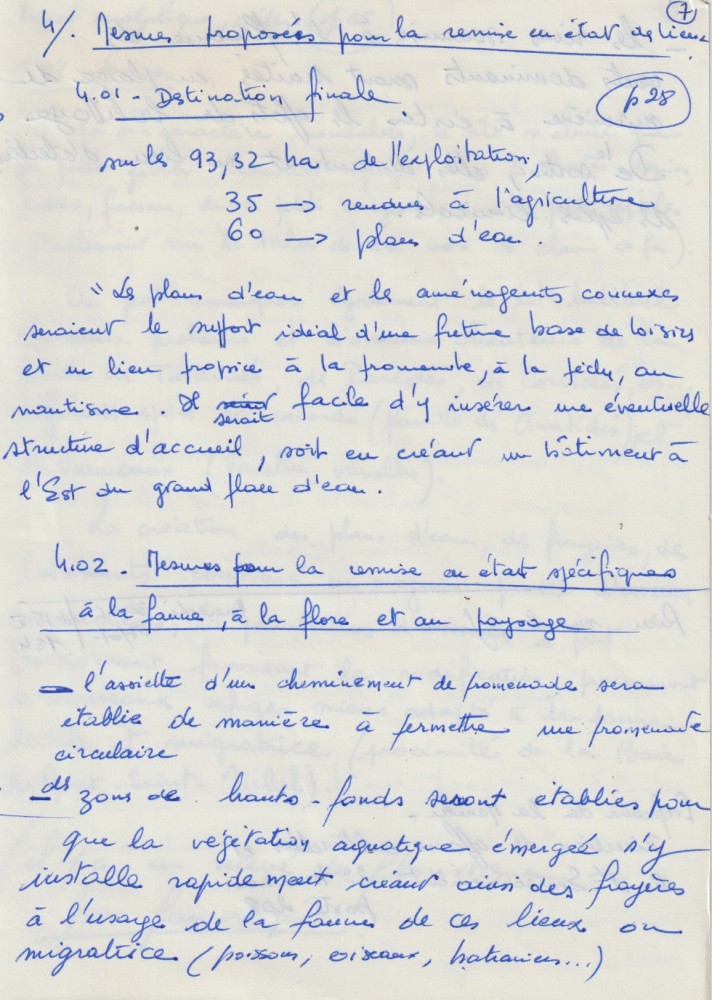 7
4/. Mesures proposées pour la remise en état des lieux
4.01 - Destination finale
p28
sur les 93,32 ha de l'exploitation,
35 → rendues à l'agriculture
60 → plans d'eau.
"Les plans d'eau et les aménagents connexes
seraient le support idéal d'une future base de loisirs
et un lieu propice à la promenade, à la pêche, au
nautisme. Il serait facile d'y insérer une éventuelle
structure d'accueil, soit en créant un bâtiment à
l'Est du grand plan d'eau.
4.02. Mesures pour la remise en état spécifiques
à la faune, à la flore et au paysage
- l'assiette d'un cheminement de promenade sera
établie de manière à permettre une promenade
circulaire
- des zones de hauts-fonds seront établies pour
que la végétation aquatique émergée s'y
installe rapidement créant ainsi des frayères
à l'usage de la faune de ces lieux ou
migratrice (poissons, oiseaux, batraciens...)